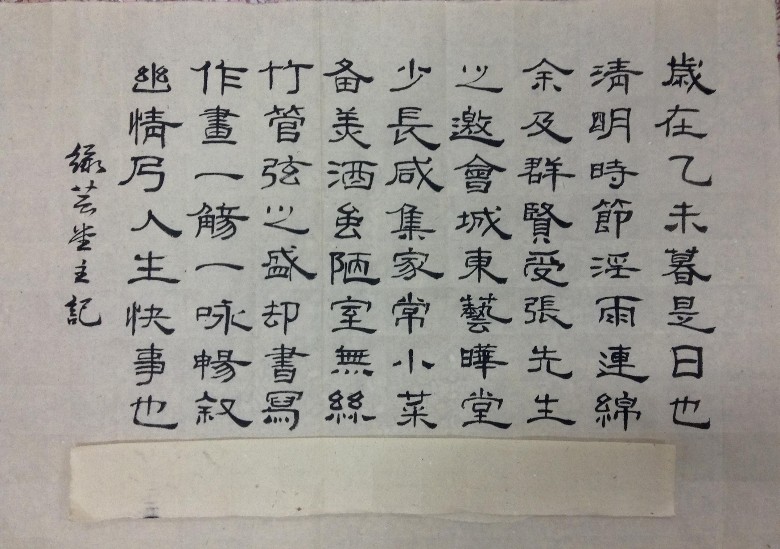 歲在乙未暮是日也
清明時節淫雨連綿
余及群賢受張先生
之邀會城東藝曄堂
少長咸集家常小菜
备美酒虽陋室無絲
竹管弦之盛却書寫
作畫一觴一咏暢叙
幽情乃人生快事也
芸堂主記